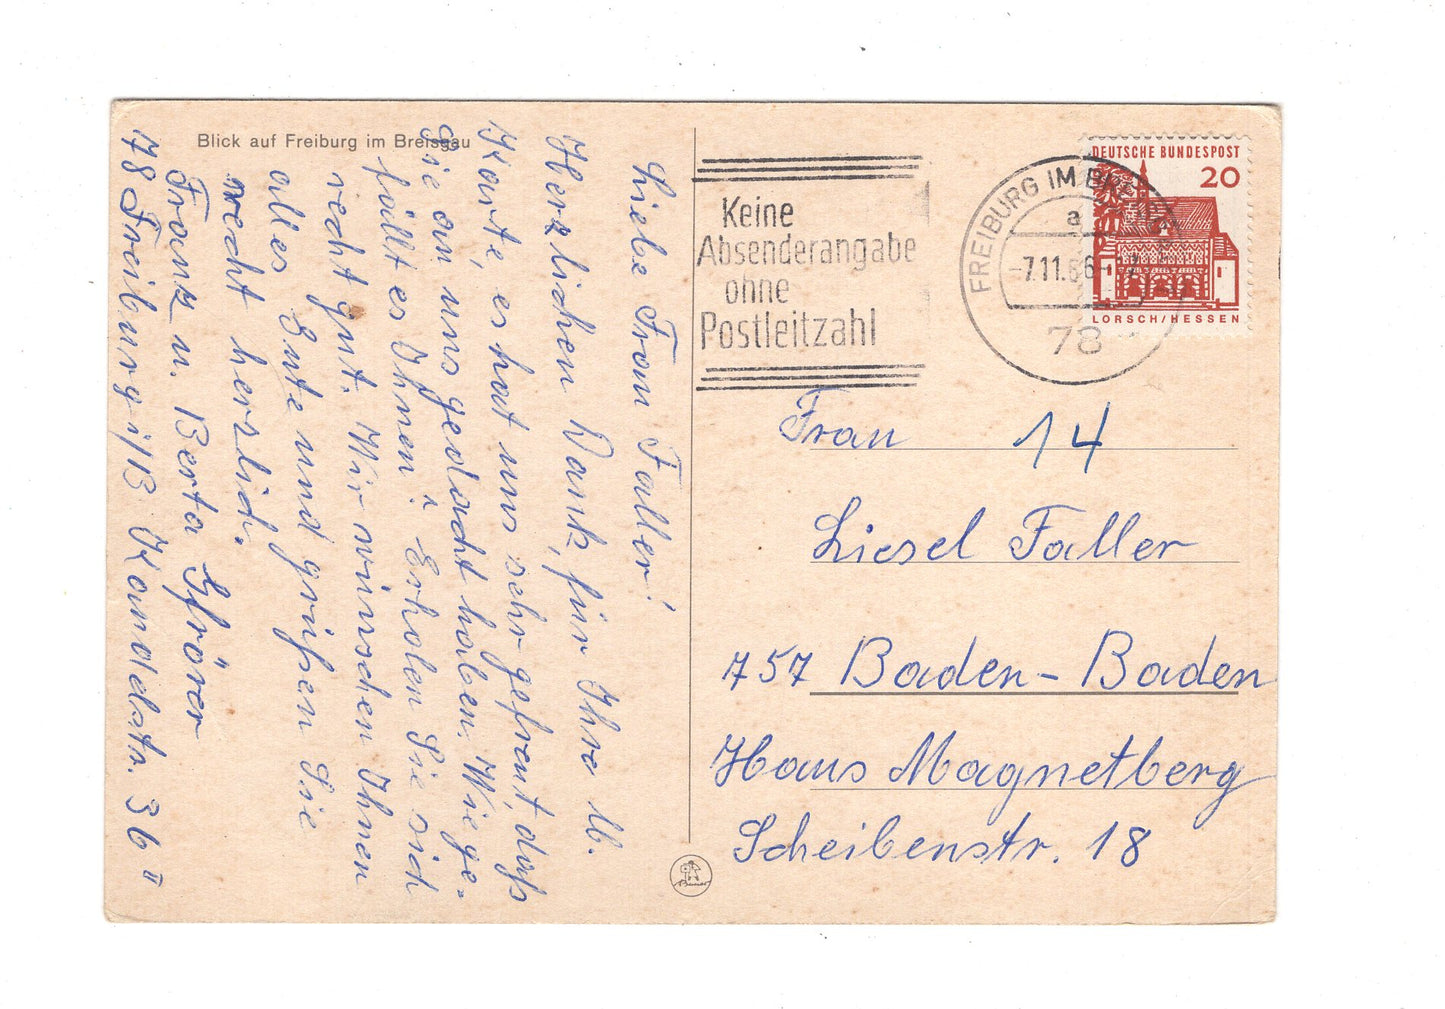 Blick auf Freiburg im Breisgau
Liebe Frau Faller!
Herzlichen Dank für Ihre lb.
Karte, es hat uns sehr gefreut, daß
Sie an uns gedacht haben. Wie ge-
fällt es Ihnen? Erholen Sie sich
recht gut. Wir wünschen Ihnen
alles Gute und grüßen Sie
recht herzlich.
Franz u. Berta Gfrörer
78 Freiburg i/B Kandelstr. 36 II
Keine
Absenderangabe
ohne
Postleitzahl
FREIBURG IM BREISGAU
a
-7.11.66-
78
DEUTSCHE BUNDESPOST
20
LORSCH/HESSEN
Frau 14
Liesel Faller
757 Baden-Baden
Haus Magnetberg
Scheibenstr. 18